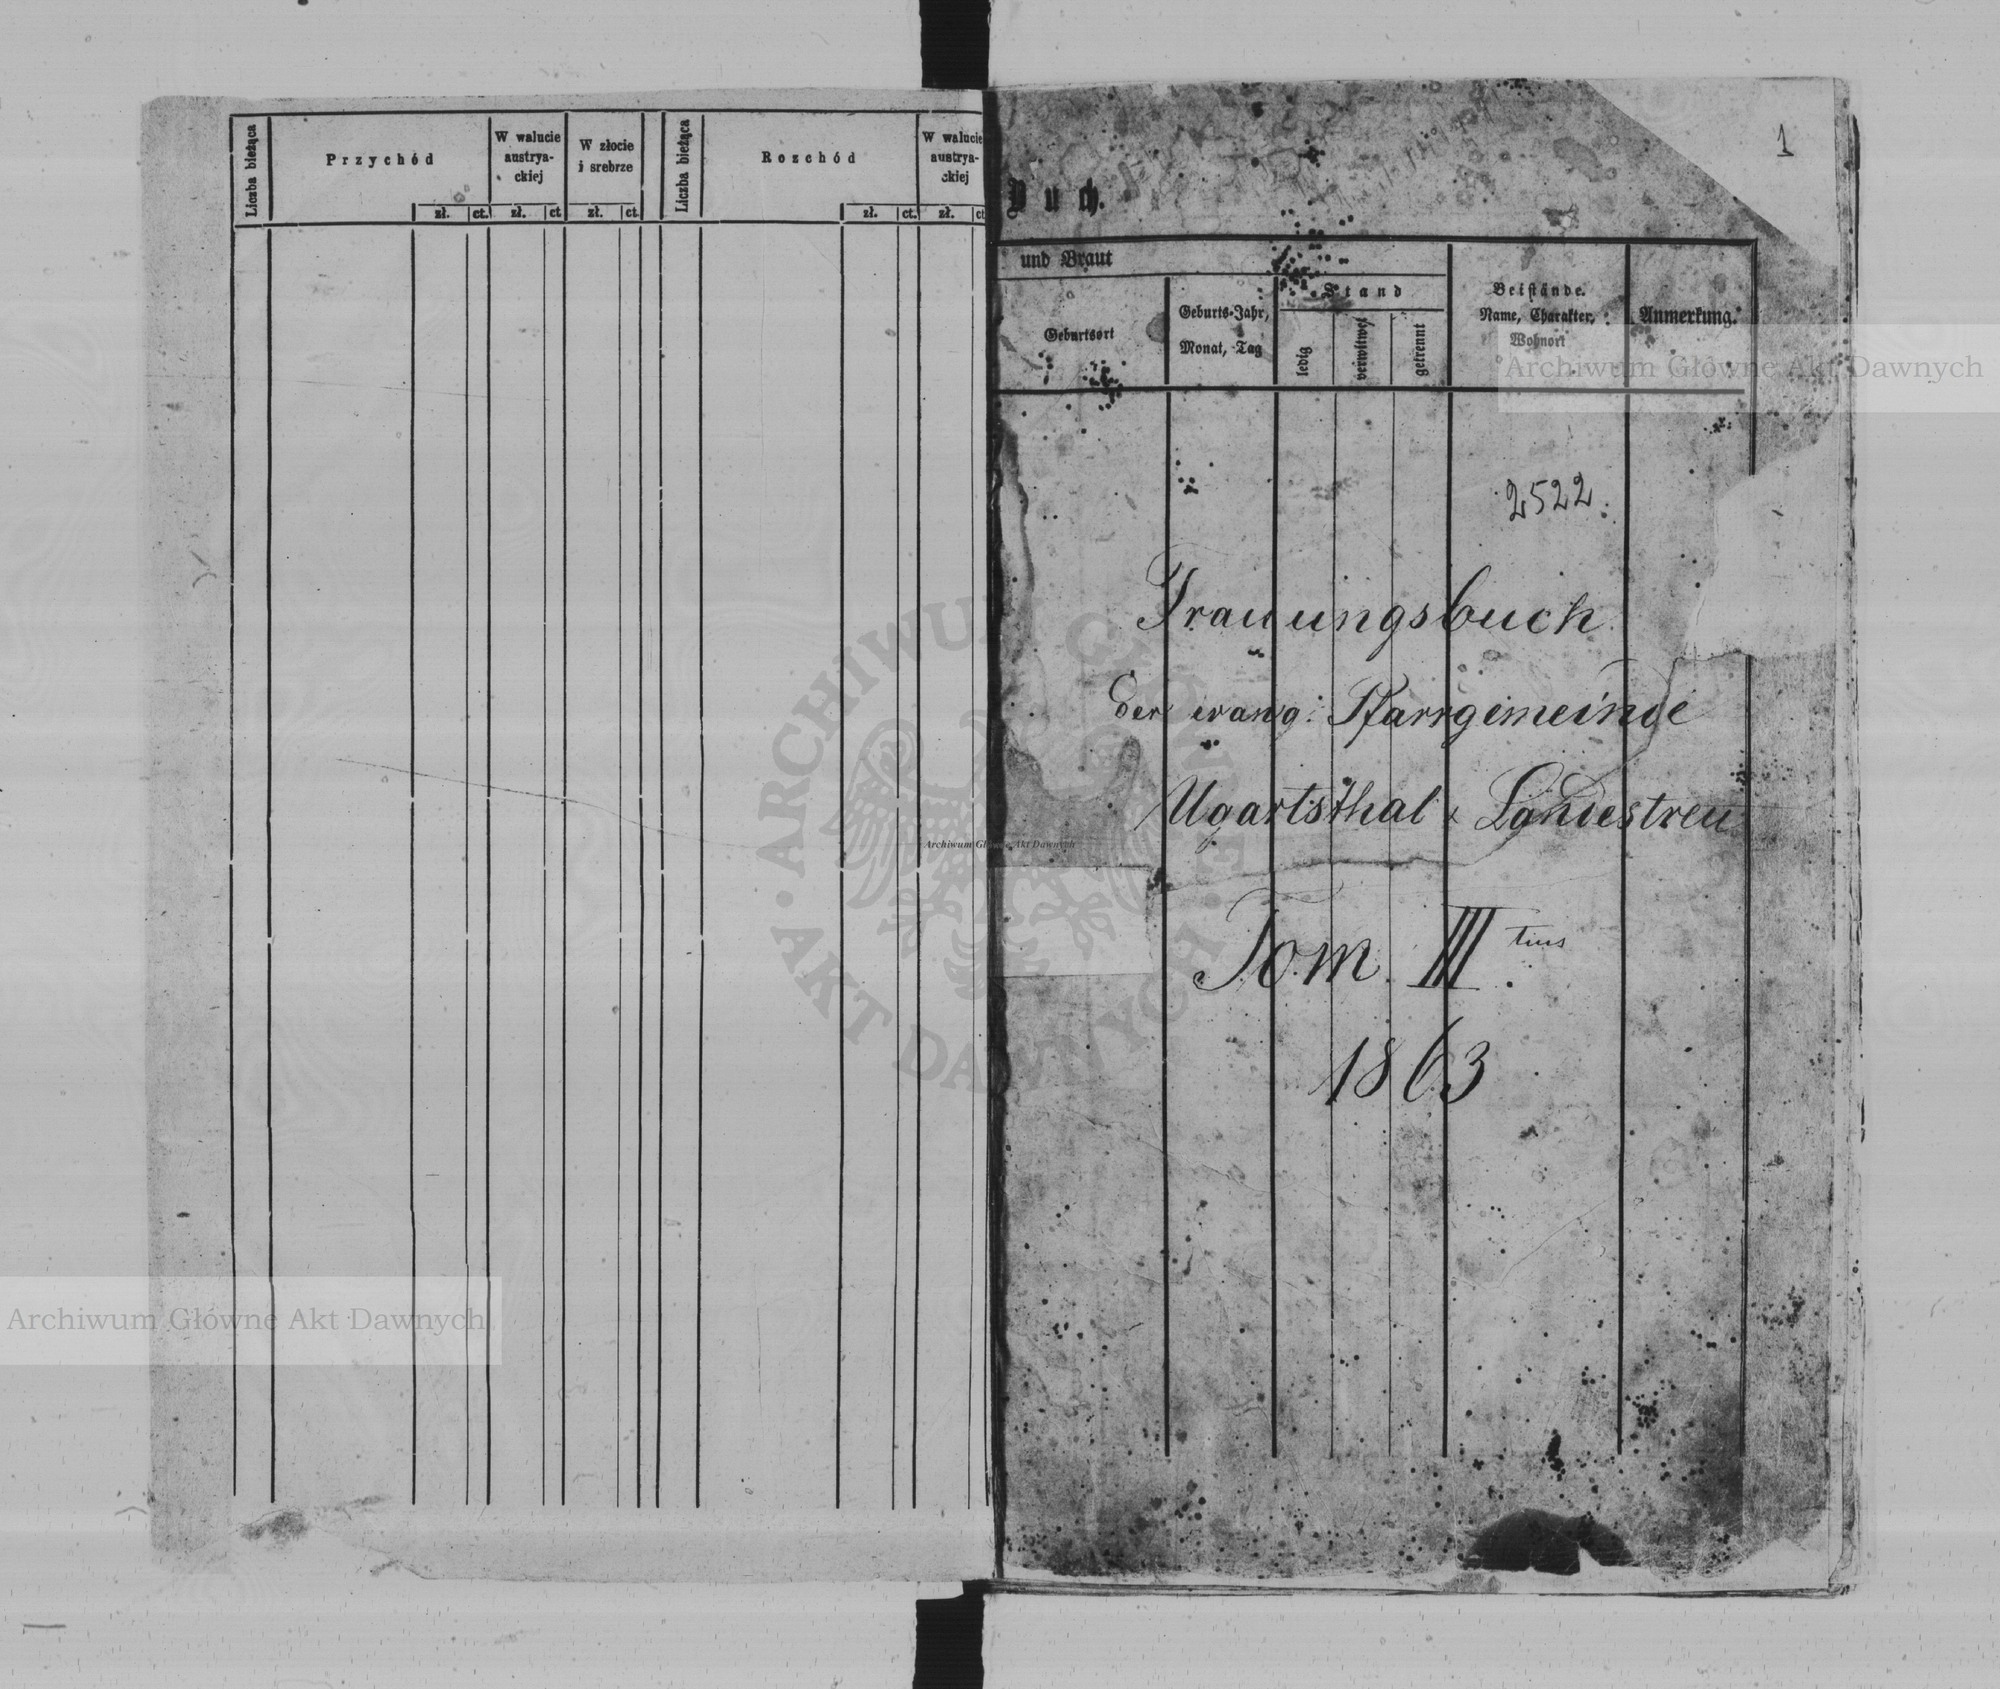 Liczba bieżąca
Przychód
W walucie
austrya-
ckiej
W złocie
i srebrze
Liczba bieżąca
Rozchód
W walucie
austrya-
ckiej
zł. ct. zł. ct zł. ct zł. ct. zł. ct
1
Buch.
und Braut
Geburtsort
Geburts-Jahr,
Monat, Tag
Stand
ledig
verwitwet
getrennt
Beistände.
Name, Charakter,
Wohnort
Anmerkung.
2522.
Trauungsbuch
der evang: Pfarrgemeinde
Ugartsthal & Landestreu
Tom. III tius.
1863
Archiwum Główne Akt Dawnych
ARCHIWUM GŁÓWNE · AKT DAWNYCH ·
Archiwum Główne Akt Dawnych
Archiwum Główne Akt Dawnych